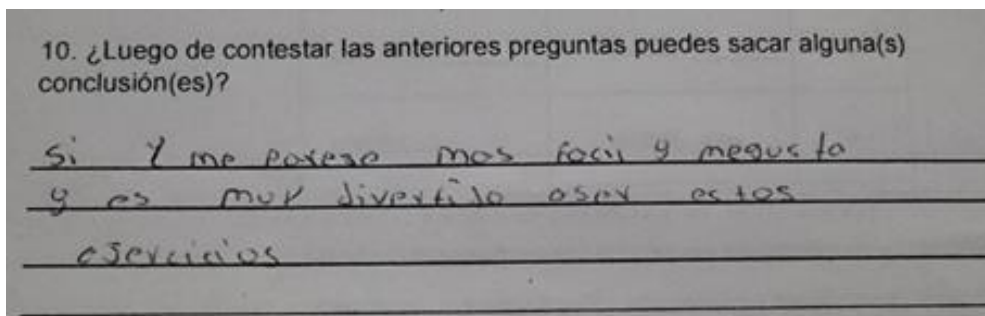 10. ¿Luego de contestar las anteriores preguntas puedes sacar alguna(s)
conclusión(es)?
Si Y me parese mas facil y megusta
y es muy divertido aser estos
ejercicios